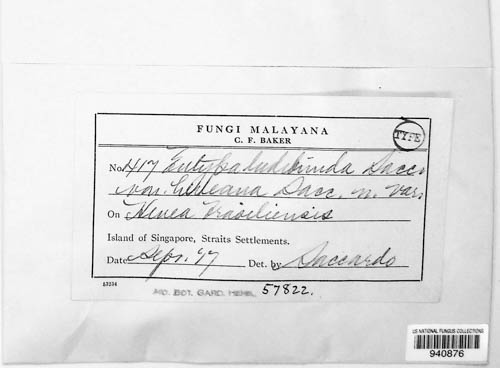 FUNGI MALAYANA
C. F. BAKER
TYPE
No. 417 Eutypa ludibunda Sacc.
var. heveana Sacc. n. var.
On Hevea brasiliensis
Island of Singapore, Straits Settlements.
Date Sept. 17 Det. by Saccardo
53234
MO. BOT. GARD. HERB. 57822.
US NATIONAL FUNGUS COLLECTIONS
940876